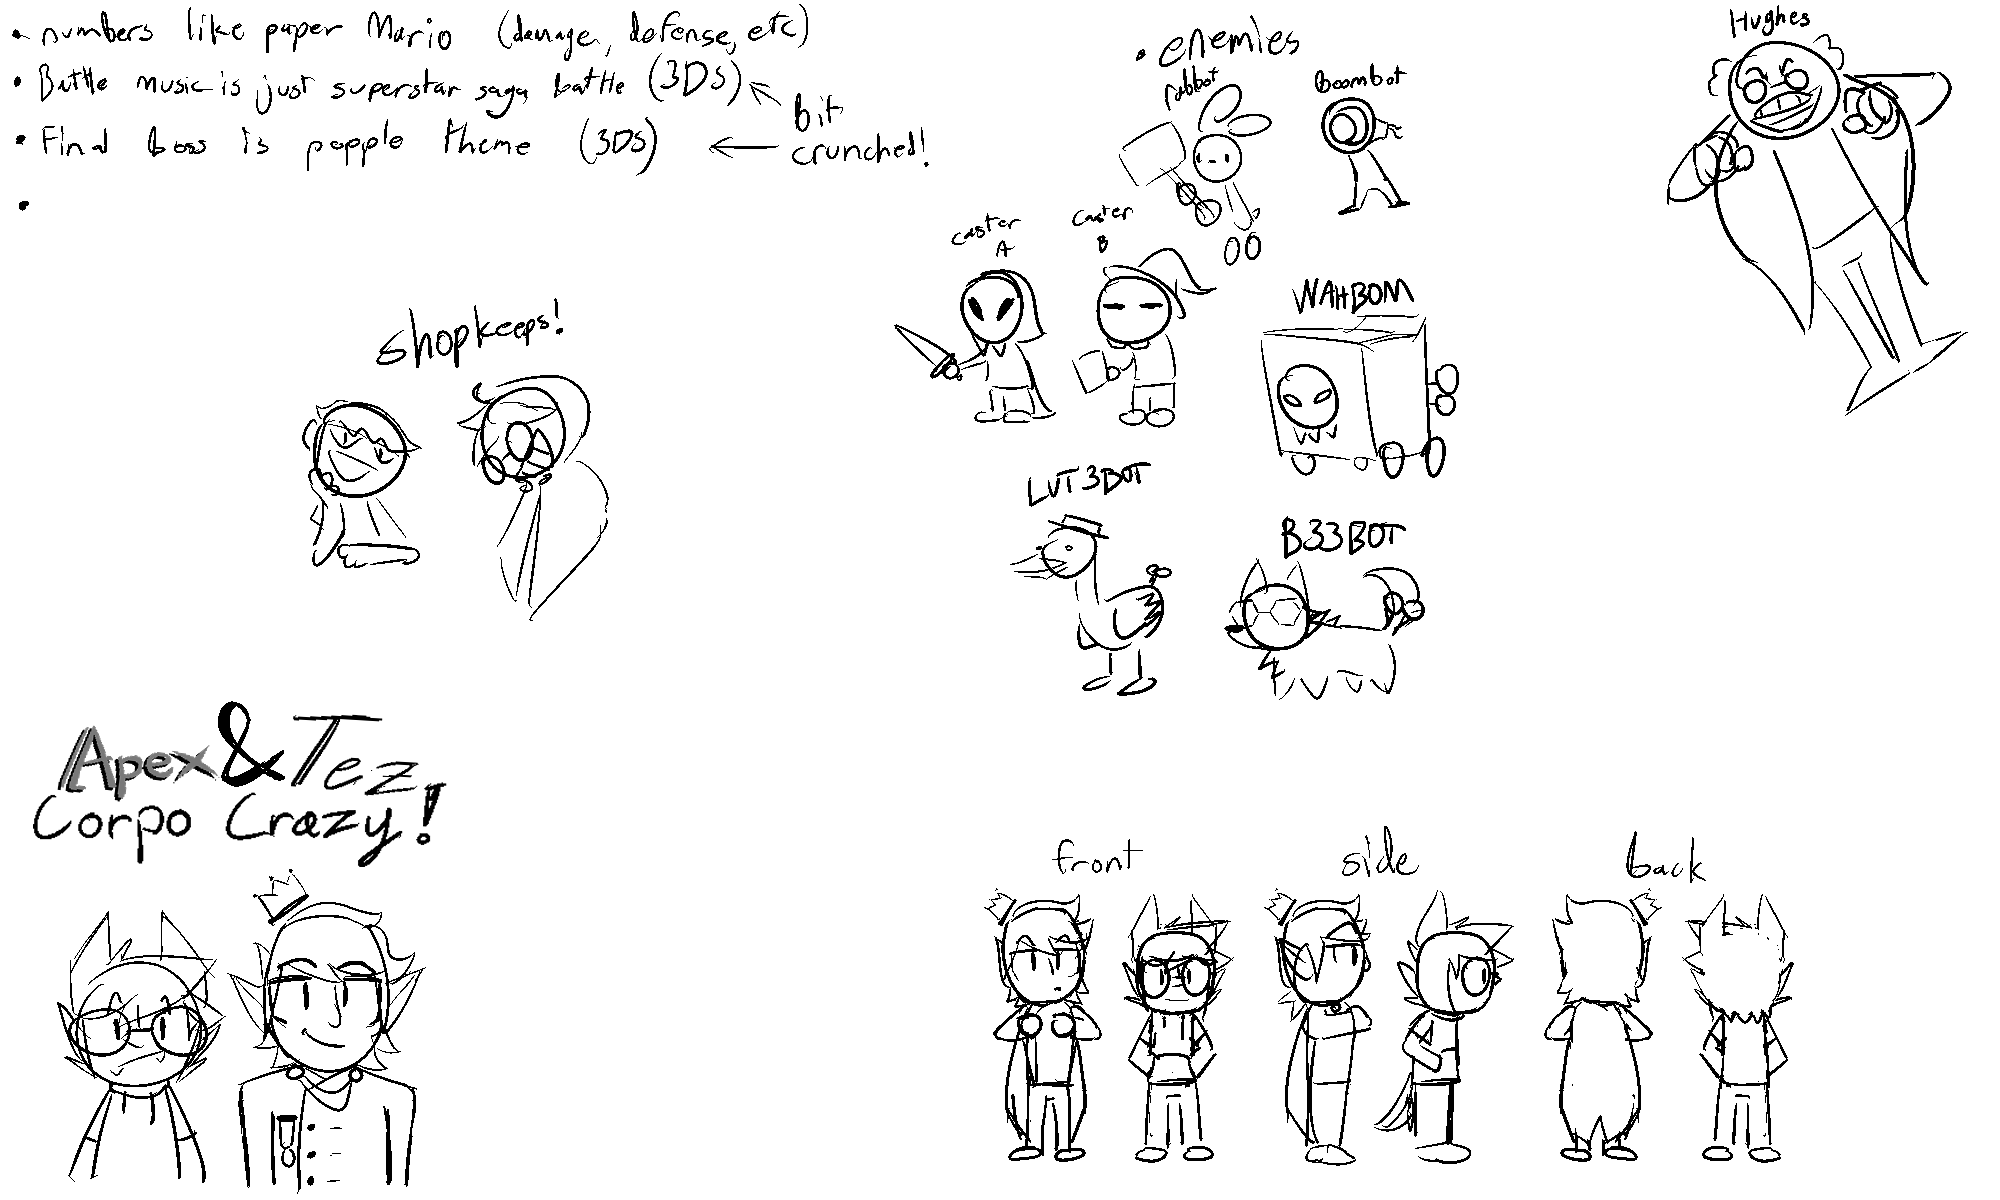 • numbers like paper Mario (damage, defense, etc)
• Battle music is just superstar saga battle (3DS)
• Final boss is popple theme (3DS)
bit
crunched!
•
• enemies
robbot
Boombot
Hughes
caster
A
caster
B
WAHBOM
shopkeeps!
LUT3BOT
B33BOT
Apex & Tez
Corpo Crazy!
front side back